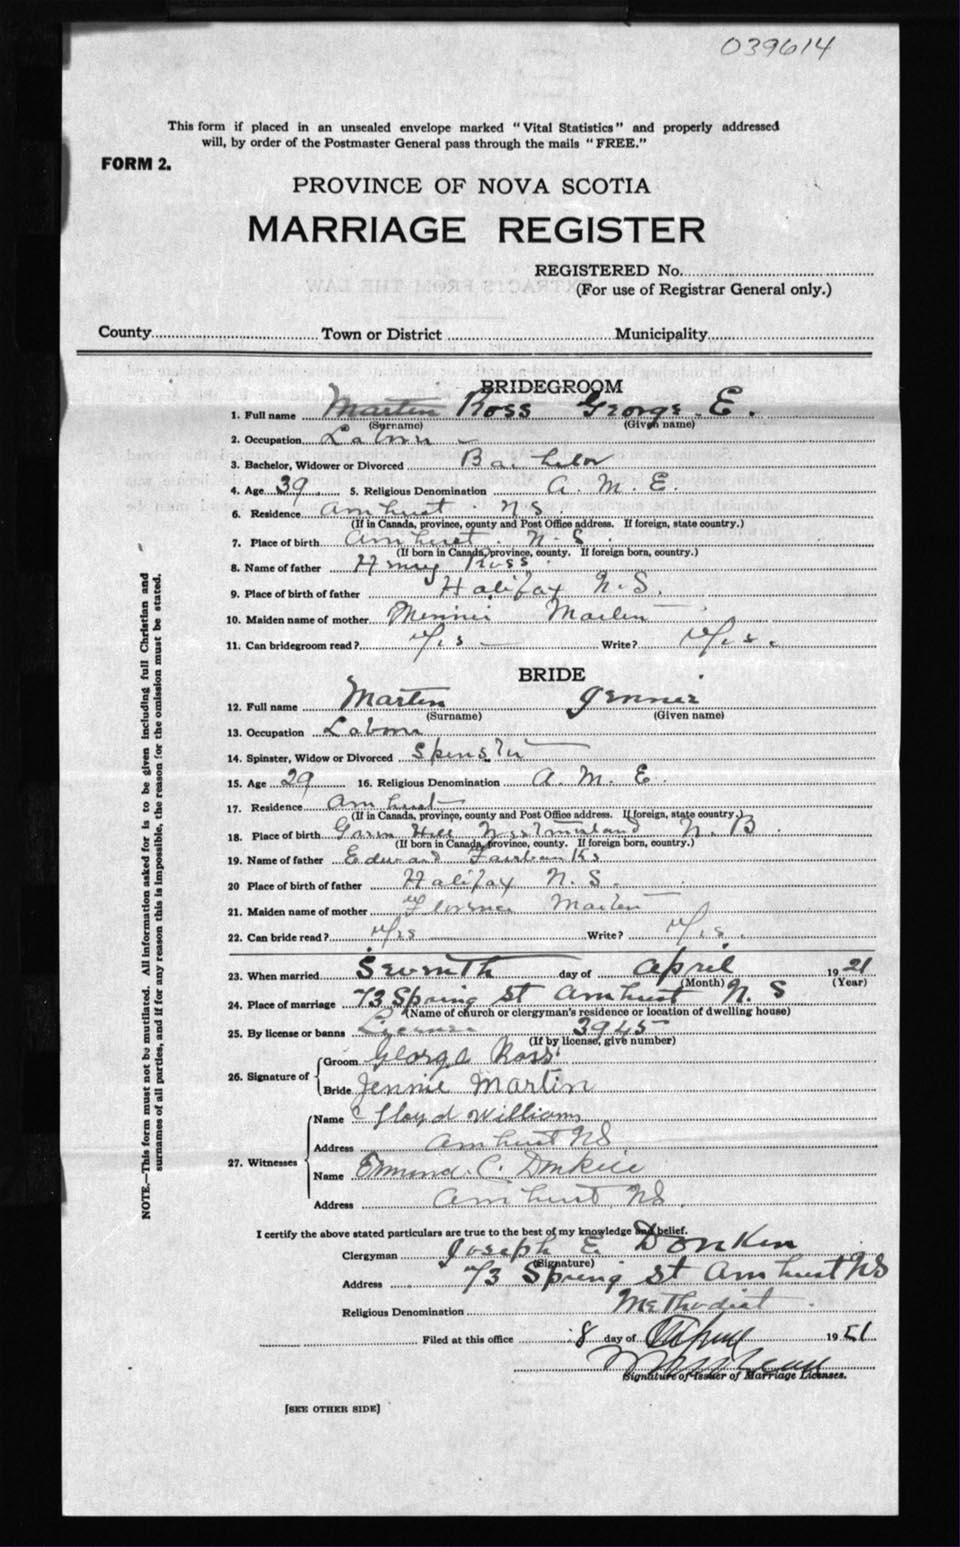 039614
This form if placed in an unsealed envelope marked "Vital Statistics" and properly addressed
will, by order of the Postmaster General pass through the mails "FREE."
FORM 2.
PROVINCE OF NOVA SCOTIA
MARRIAGE REGISTER
REGISTERED No.
(For use of Registrar General only.)
County Town or District Municipality
BRIDEGROOM
1. Full name Martin Ross George E.
(Surname) (Given name)
2. Occupation
3. Bachelor, Widower or Divorced Bachelor
4. Age 39 5. Religious Denomination A. M. E.
6. Residence Amhurst N S
(If in Canada, province, county and Post Office address. If foreign, state country.)
7. Place of birth Amhurst N. S.
(If born in Canada, province, county. If foreign born, country.)
8. Name of father Henry Ross
9. Place of birth of father Halifax N. S.
10. Maiden name of mother Minnie
11. Can bridegroom read? Yes Write? Yes.
BRIDE
12. Full name Martin Jennie
(Surname) (Given name)
13. Occupation
14. Spinster, Widow or Divorced Spinster
15. Age 29 16. Religious Denomination A. M. E.
17. Residence Amhurst
(If in Canada, province, county and Post Office address. If foreign, state country.)
18. Place of birth Hill N. B.
(If born in Canada, province, county. If foreign born, country.)
19. Name of father Edward Fairbanks
20 Place of birth of father Halifax N. S.
21. Maiden name of mother Florence
22. Can bride read? Yes Write? Yes.
23. When married Seventh day of April 1921
(Month) (Year)
24. Place of marriage 73 Spring St Amhurst N. S
(Name of church or clergyman's residence or location of dwelling house)
25. By license or banns License 3945
(If by license, give number)
26. Signature of
Groom George Ross
Bride Jennie Martin
27. Witnesses
Name Lloyd Williams
Address Amhurst NS
Name C.
Address Amhurst, NS.
I certify the above stated particulars are true to the best of my knowledge and belief.
Clergyman Joseph E. Donken
(Signature)
Address 73 Spring St Amhurst NS
Religious Denomination Methodist
Filed at this office 8 day of April 1921
Signature of Issuer of Marriage Licenses.
[SEE OTHER SIDE]
NOTE.—This form must not be mutilated. All information asked for is to be given including full Christian and
surnames of all parties, and if for any reason this is impossible, the reason for the omission must be stated.